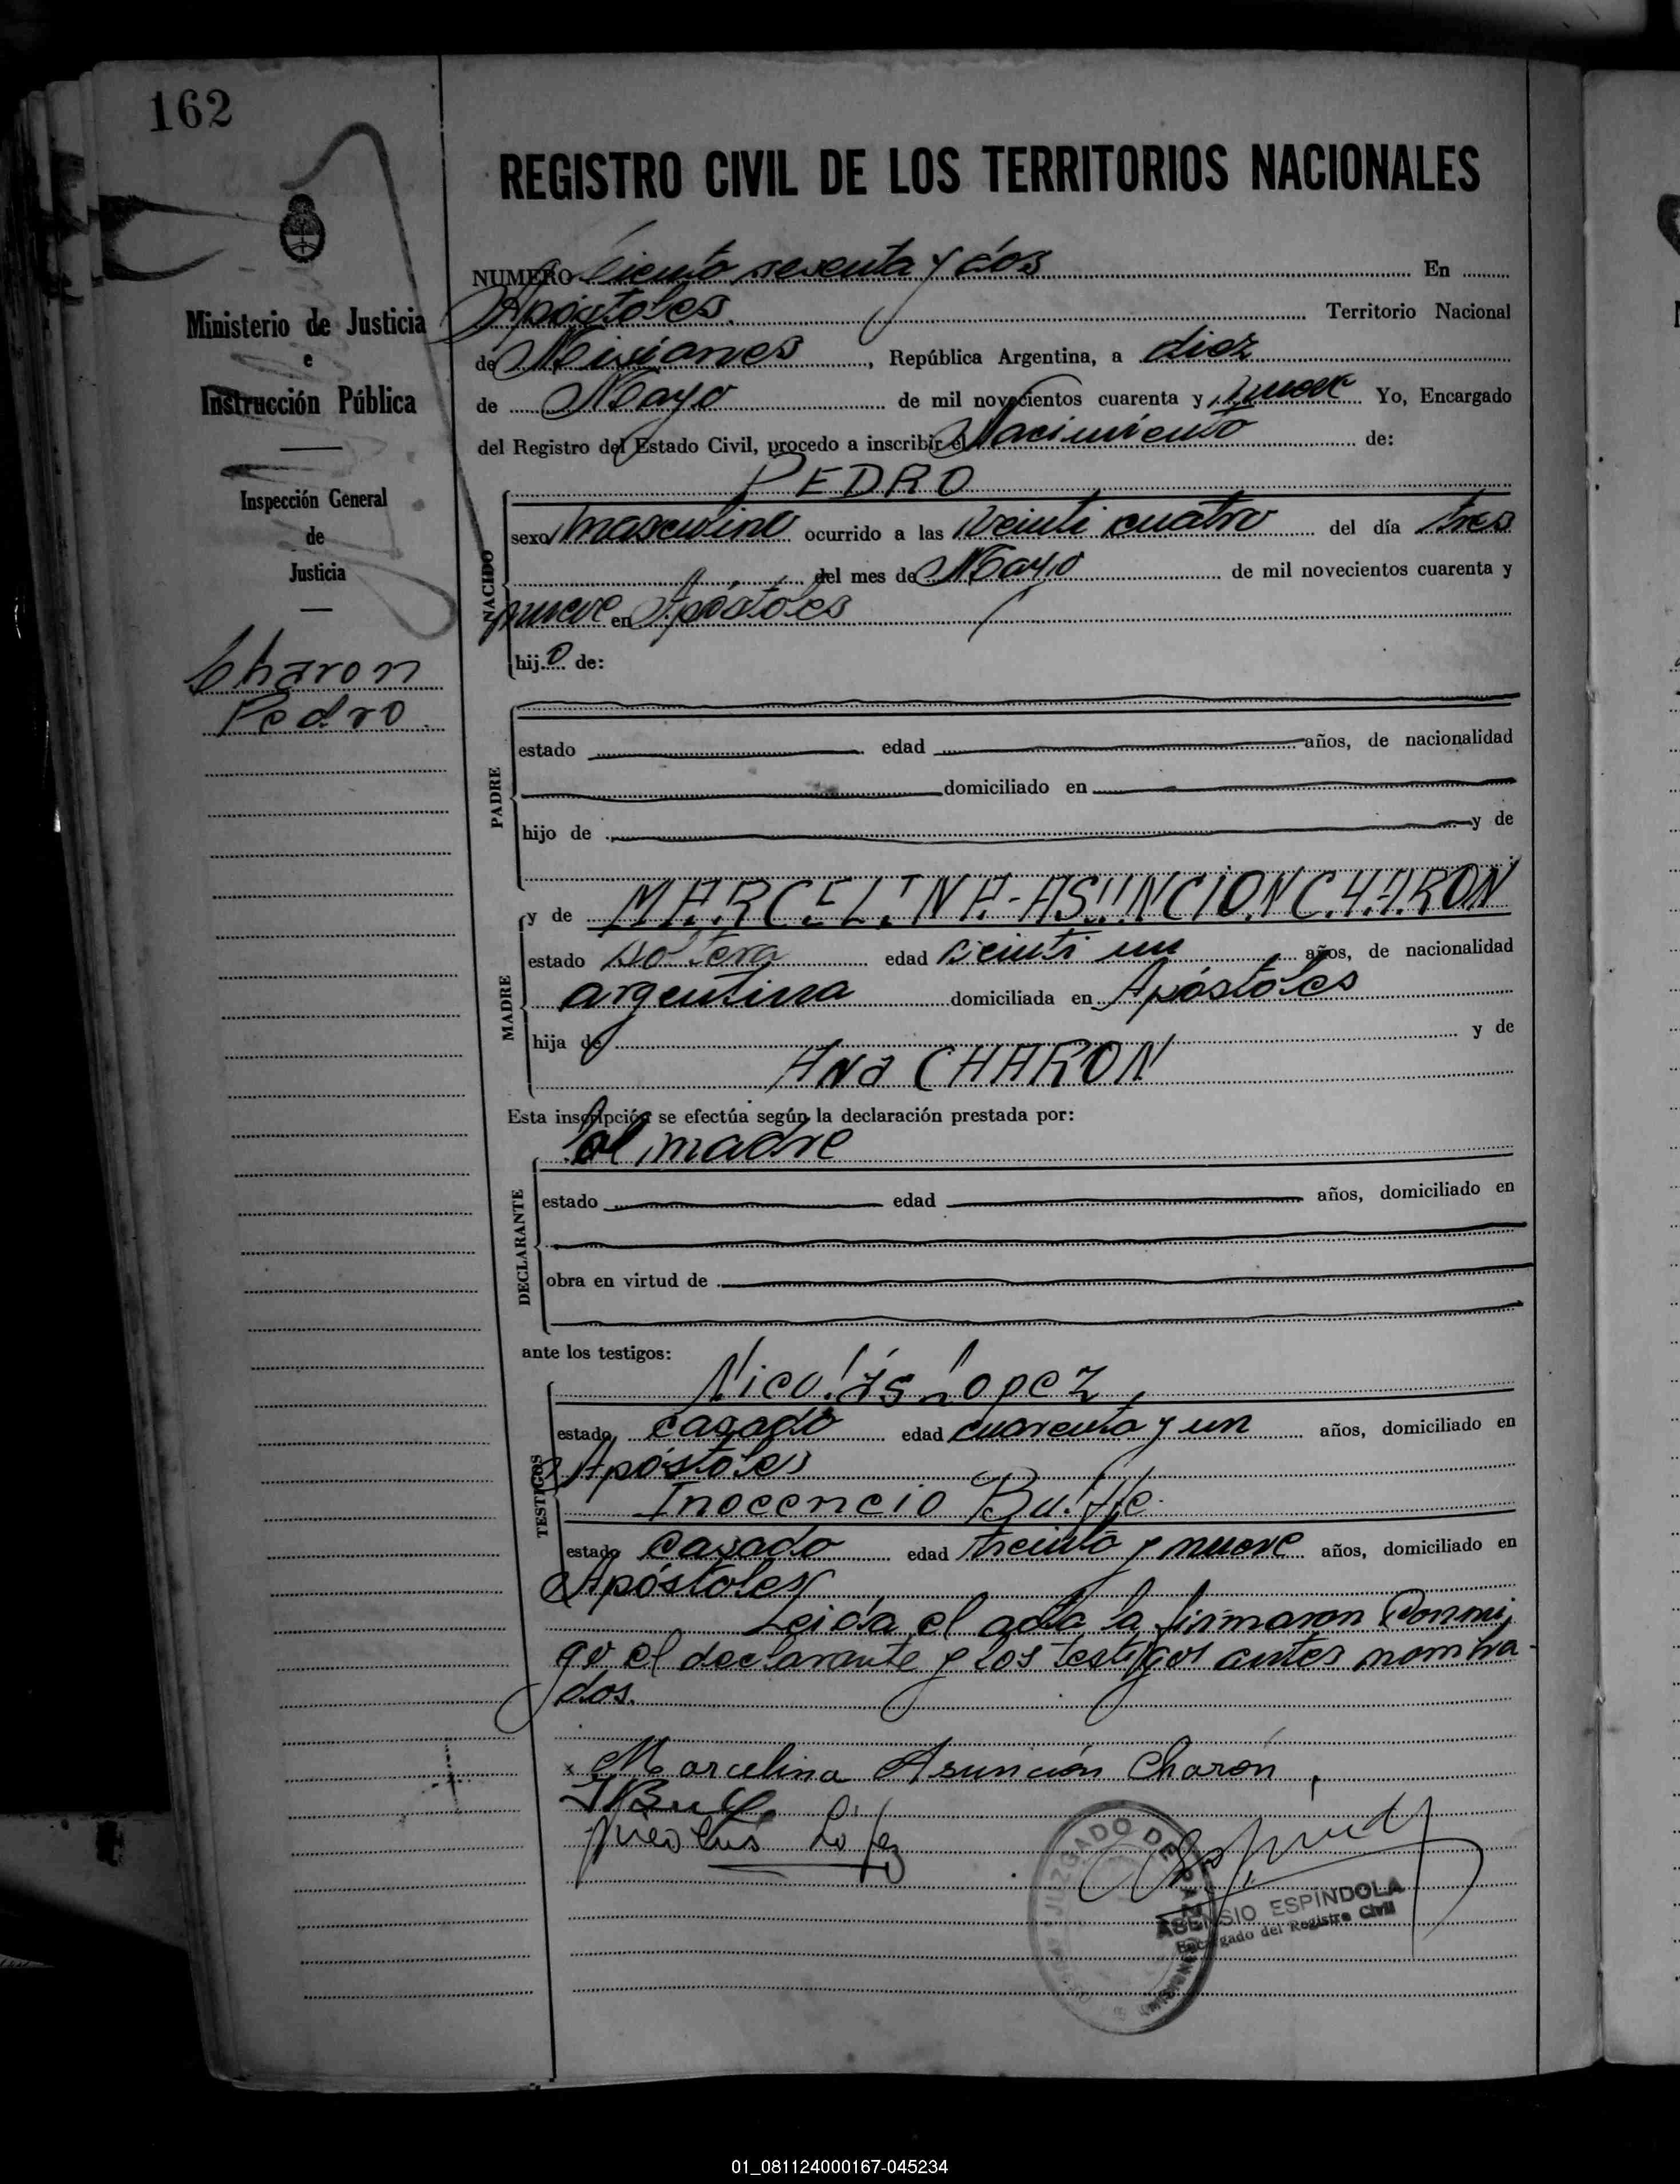 162
REGISTRO CIVIL DE LOS TERRITORIOS NACIONALES
Ministerio de Justicia
e
Instrucción Pública
Inspección General
de
Justicia
Charon
Pedro
NUMERO Ciento sesenta y dos En
Apóstoles. Territorio Nacional
de Misiones, República Argentina, a diez
de Mayo de mil novecientos cuarenta y nueve Yo, Encargado
del Registro del Estado Civil, procedo a inscribir el Nacimiento de:
NACIDO
PEDRO
sexo masculino ocurrido a las veinti cuatro del día tres
del mes de Mayo de mil novecientos cuarenta y
nueve en Apóstoles
hijo de:
PADRE
estado edad años, de nacionalidad
domiciliado en
hijo de y de
MADRE
y de MARCELINA-ASUNCION CHARON
estado soltera edad veinti un años, de nacionalidad
argentina domiciliada en Apóstoles
hija de y de
Ana CHARON
Esta inscripción se efectúa según la declaración prestada por:
DECLARANTE
la madre
estado edad años, domiciliado en
obra en virtud de
ante los testigos:
TESTIGOS
Nicolás Lopez
estado casado edad cuarenta y un años, domiciliado en
Apóstoles
Inocencio
estado casado edad treinta y nueve años, domiciliado en
Apóstoles
Leida el acta la firmaron conmi,
go el declarante y los testigos antes nombra-
dos.
x Marcelina Asunción Charón,
Nicolás López
JUZGADO DE PAZ
MISIONES
ASENSIO ESPÍNDOLA
Encargado del Registro Civil
01_081124000167-045234